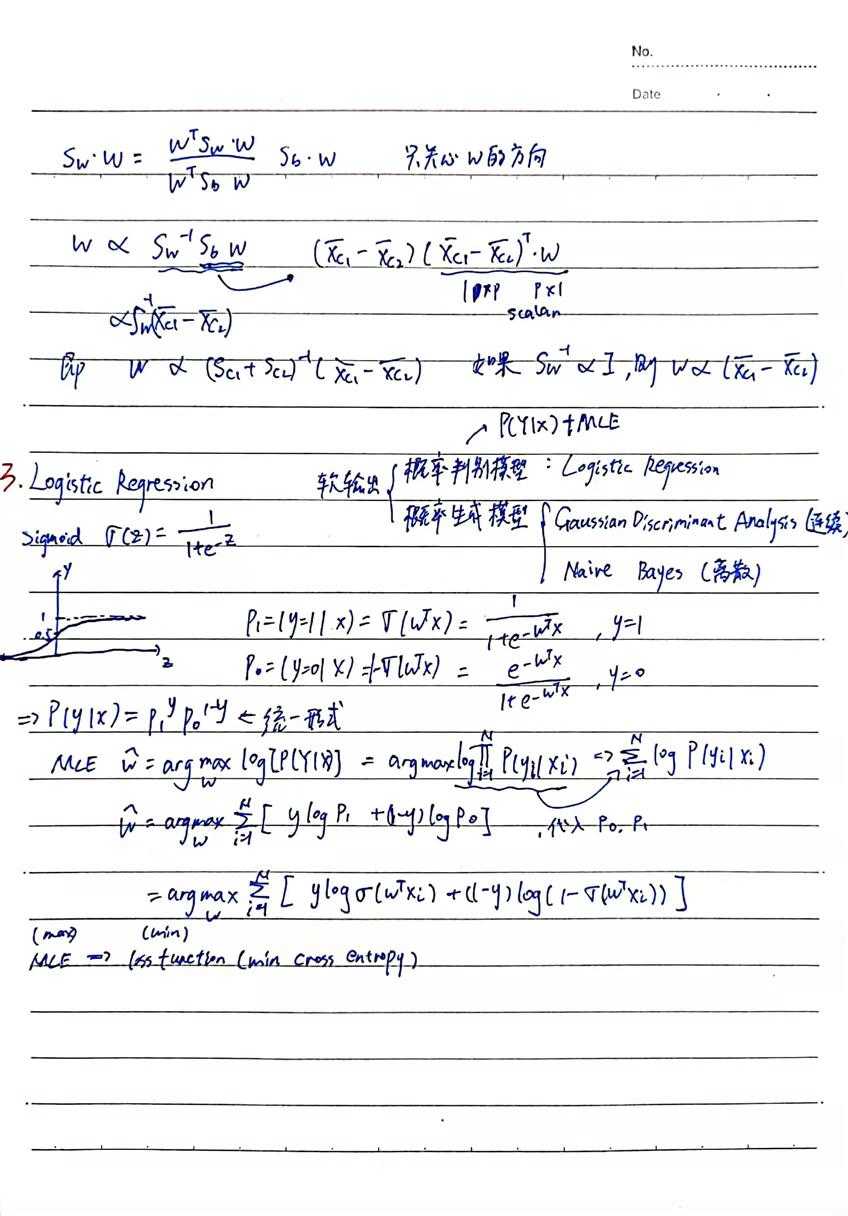 No.
Date
S_w·W = (W^T S_w·W)/(W^T S_b W) S_b·W 只关心 W的方向
W ∝ S_w^-1 S_b W (x̄_c1 - x̄_c2)(x̄_c1 - x̄_c2)^T·W
1×p p×1
scalar
∝ S_w^-1(x̄_c1 - x̄_c2)
即 W ∝ (S_c1 + S_c2)^-1(x̄_c1 - x̄_c2) 如果 S_w^-1 ∝ I, 则 W ∝ (x̄_c1 - x̄_c2)
↗ P(Y|X)+MLE
3. Logistic Regression 软输出 { 概率判别模型 : Logistic Regression
概率生成模型 { Gaussian Discriminant Analysis (连续)
Sigmoid σ(z) = 1/(1+e^-z)
Naive Bayes (离散)
y
1
0.5
z
P_1=(y=1|x) = σ(W^T x) = 1/(1+e^-W^T x) , y=1
P_0=(y=0|x) = 1-σ(W^T x) = e^-W^T x/(1+e^-W^T x) , y=0
=> P(y|x) = P_1^y P_0^1-y ← 统一形式
MLE ŵ = argmax_w log[P(Y|X)] = argmax log ∏_{i=1}^N P(y_i|x_i) => ∑_{i=1}^N log P(y_i|x_i)
ŵ = argmax_w ∑_{i=1}^N [ y log P_1 + (1-y) log P_0 ] , 代入 P_0, P_1
= argmax_w ∑_{i=1}^N [ y log σ(W^T x_i) + (1-y) log(1-σ(W^T x_i)) ]
(max) (min)
MLE => loss function (min cross entropy)